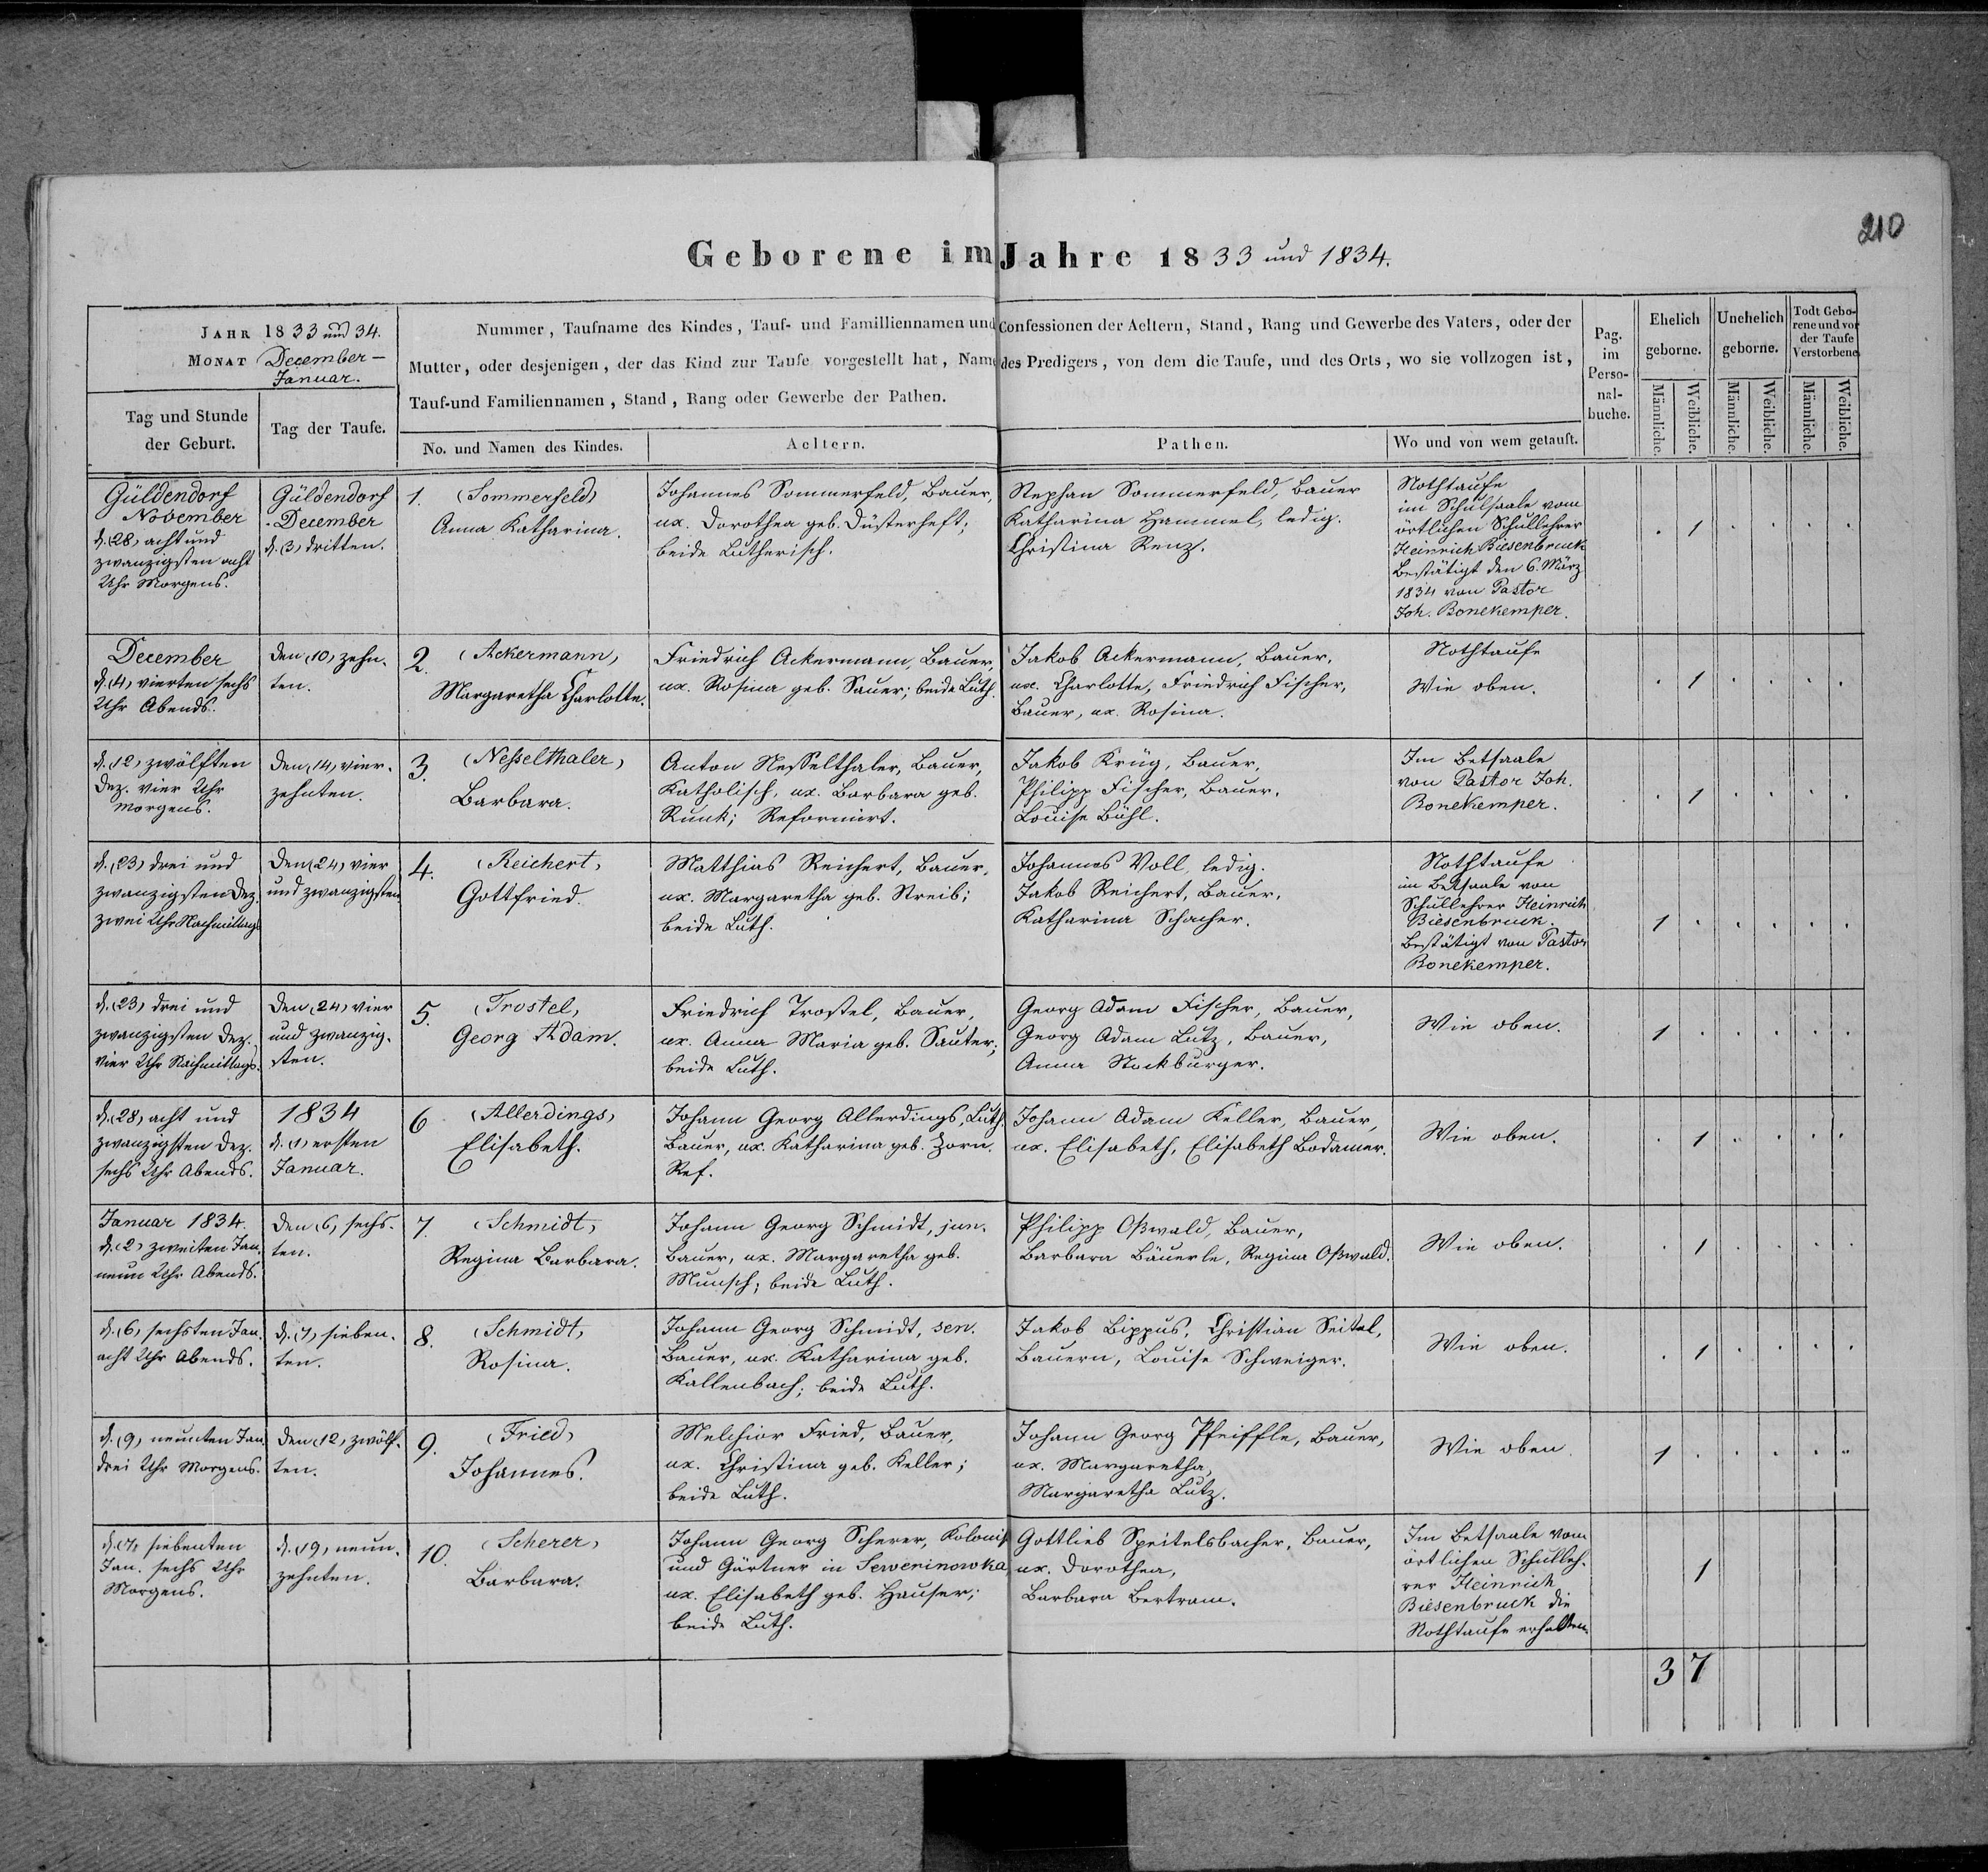 210
Geborene im Jahre 1833 und 1834.
JAHR 1833 und 34.
MONAT December –
Januar.
Tag und Stunde
der Geburt.
Tag der Taufe.
Nummer, Taufname des Kindes, Tauf- und Familliennamen und Confessionen der Aeltern, Stand, Rang und Gewerbe des Vaters, oder der
Mutter, oder desjenigen, der das Kind zur Taufe vorgestellt hat, Name des Predigers, von dem die Taufe, und des Orts, wo sie vollzogen ist,
Tauf-und Familiennamen, Stand, Rang oder Gewerbe der Pathen.
No. und Namen des Kindes.
Aeltern.
Pathen.
Wo und von wem getauft.
Pag.
im
Perso-
nal-
buche.
Ehelich
geborne.
Unehelich
geborne.
Todt Gebo-
rene und vor
der Taufe
Verstorbene.
Männliche.
Weibliche.
Männliche.
Weibliche.
Männliche.
Weibliche.
Güldendorf
November
d. (28) acht und
zwanzigsten acht
Uhr Morgens.
Güldendorf
December
d. (3) dritten.
1. (Sommerfeld)
Anna Katharina.
Johannes Sommerfeld, Bauer,
ux. Dorothea geb. Düsterheft;
beide Lutherisch.
Stephan Sommerfeld, Bauer
Katharina Hammel, ledig.
Christina Renz.
Nothtaufe
im Schulsaale vom
örtlichen Schullehrer
Heinrich Biesenbruck
Bestätigt den 6. März
1834 von Pastor
Joh. Bonekemper.
1
December
d. (4) vierten sechs
Uhr Abends.
den (10) zehn-
ten.
2. (Ackermann)
Margaretha Charlotte.
Friedrich Ackermann, Bauer,
ux. Rosina geb. Sauer; beide Luth.
Jakob Ackermann, Bauer,
ux. Charlotte, Friedrich Fischer,
Bauer, ux. Rosina.
Nothtaufe
Wie oben.
1
d. (12) zwölften
Dez. vier Uhr
Morgens.
den (14) vier-
zehnten.
3. (Nesselthaler)
Barbara.
Anton Nesselthaler, Bauer,
Katholisch, ux. Barbara geb.
Runk; Reformirt.
Jakob Krüg, Bauer,
Philipp Fischer, Bauer.
Louise Bühl.
Im Betsaale
von Pastor Joh.
Bonekemper.
1
d. (23) drei und
zwanzigsten Dez.
zwei Uhr Nachmittags
den (24) vier
und zwanzigsten
4. (Reichert)
Gottfried.
Matthias Reichert, Bauer,
ux. Margaretha geb. Streib;
beide Luth.
Johannes Voll, ledig.
Jakob Reichert, Bauer,
Katharina Schacher.
Nothtaufe
im Betsaale von
Schullehrer Heinrich
Biesenbruck.
Bestätigt von Pastor
Bonekemper.
1
d. (23) drei und
zwanzigsten Dez.
vier Uhr Nachmittags.
den (24) vier
und zwanzig-
sten.
5. (Trostel)
Georg Adam.
Friedrich Trostel, Bauer,
ux. Anna Maria geb. Sauter;
beide Luth.
Georg Adam Fischer, Bauer,
Georg Adam Lutz, Bauer,
Anna Stockburger.
Wie oben.
1
d. (28) acht und
zwanzigsten Dez.
sechs Uhr Abends.
1834
d. (1) ersten
Januar.
6 (Allerdings)
Elisabeth.
Johann Georg Allerdings, Luth.
Bauer, ux. Katharina geb. Zorn.
Ref.
Johann Adam Keller, Bauer,
ux. Elisabeth, Elisabeth Bodamer.
Wie oben.
1
Januar 1834.
d. (2) zweiten Jan.
neun Uhr Abends.
den (6) sechs-
ten.
7. (Schmidt)
Regina Barbara.
Johann Georg Schmidt, jun.
Bauer, ux. Margaretha geb.
Munsch; beide Luth.
Philipp Oßwald, Bauer,
Barbara Bäuerle, Regina Oßwald.
Wie oben.
1
d. (6) sechsten Jan.
acht Uhr Abends.
d. (7) sieben-
ten.
8. (Schmidt)
Rosina.
Johann Georg Schmidt, sen.
Bauer, ux. Katharina geb.
Kallenbach; beide Luth.
Jakob Bippus, Christian Seitel,
Bauern, Louise Schweiger.
Wie oben.
1
d. (9) neunten Jan.
drei Uhr Morgens.
den (12) zwölf-
ten.
9. (Fried)
Johannes.
Melchior Fried, Bauer,
ux. Christina geb. Keller;
beide Luth.
Johann Georg Pfeiffle, Bauer,
ux. Margaretha,
Margaretha Lutz.
Wie oben.
1
d. (7) siebenten
Jan. sechs Uhr
Morgens.
d. (19) neun-
zehnten.
10. (Scherer)
Barbara.
Johann Georg Scherer, Kolonist
und Gärtner in Sewerinowka
ux. Elisabeth geb. Hauser;
beide Luth.
Gottlieb Speitelsbacher, Bauer,
ux. Dorothea,
Barbara Bertram.
Im Betsaale vom
örtlichen Schulleh-
rer Heinrich
Biesenbruck die
Nothtaufe erhalten.
1
3 7